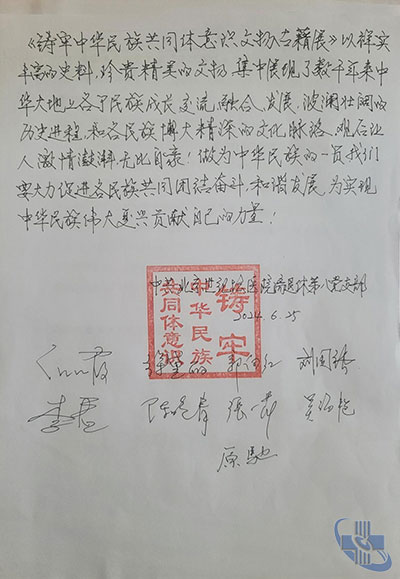 《铸牢中华民族共同体意识文物古籍展》以翔实
丰富的史料,珍贵精美的文物,集中展现了数千年来中
华大地上各个民族成长交流、融合、发展,波澜壮阔的
历史进程,和各民族博大精深的文化脉络,观后让
人激情澎湃无比自豪!做为中华民族的一员我们
要大力促进各民族共同团结奋斗,和谐发展,为实现
中华民族伟大复兴贡献自己的力量!
中共北京世纪坛医院离退休第八党支部
2024.6.25
铸牢
中华民族
共同体意识
张
原驰